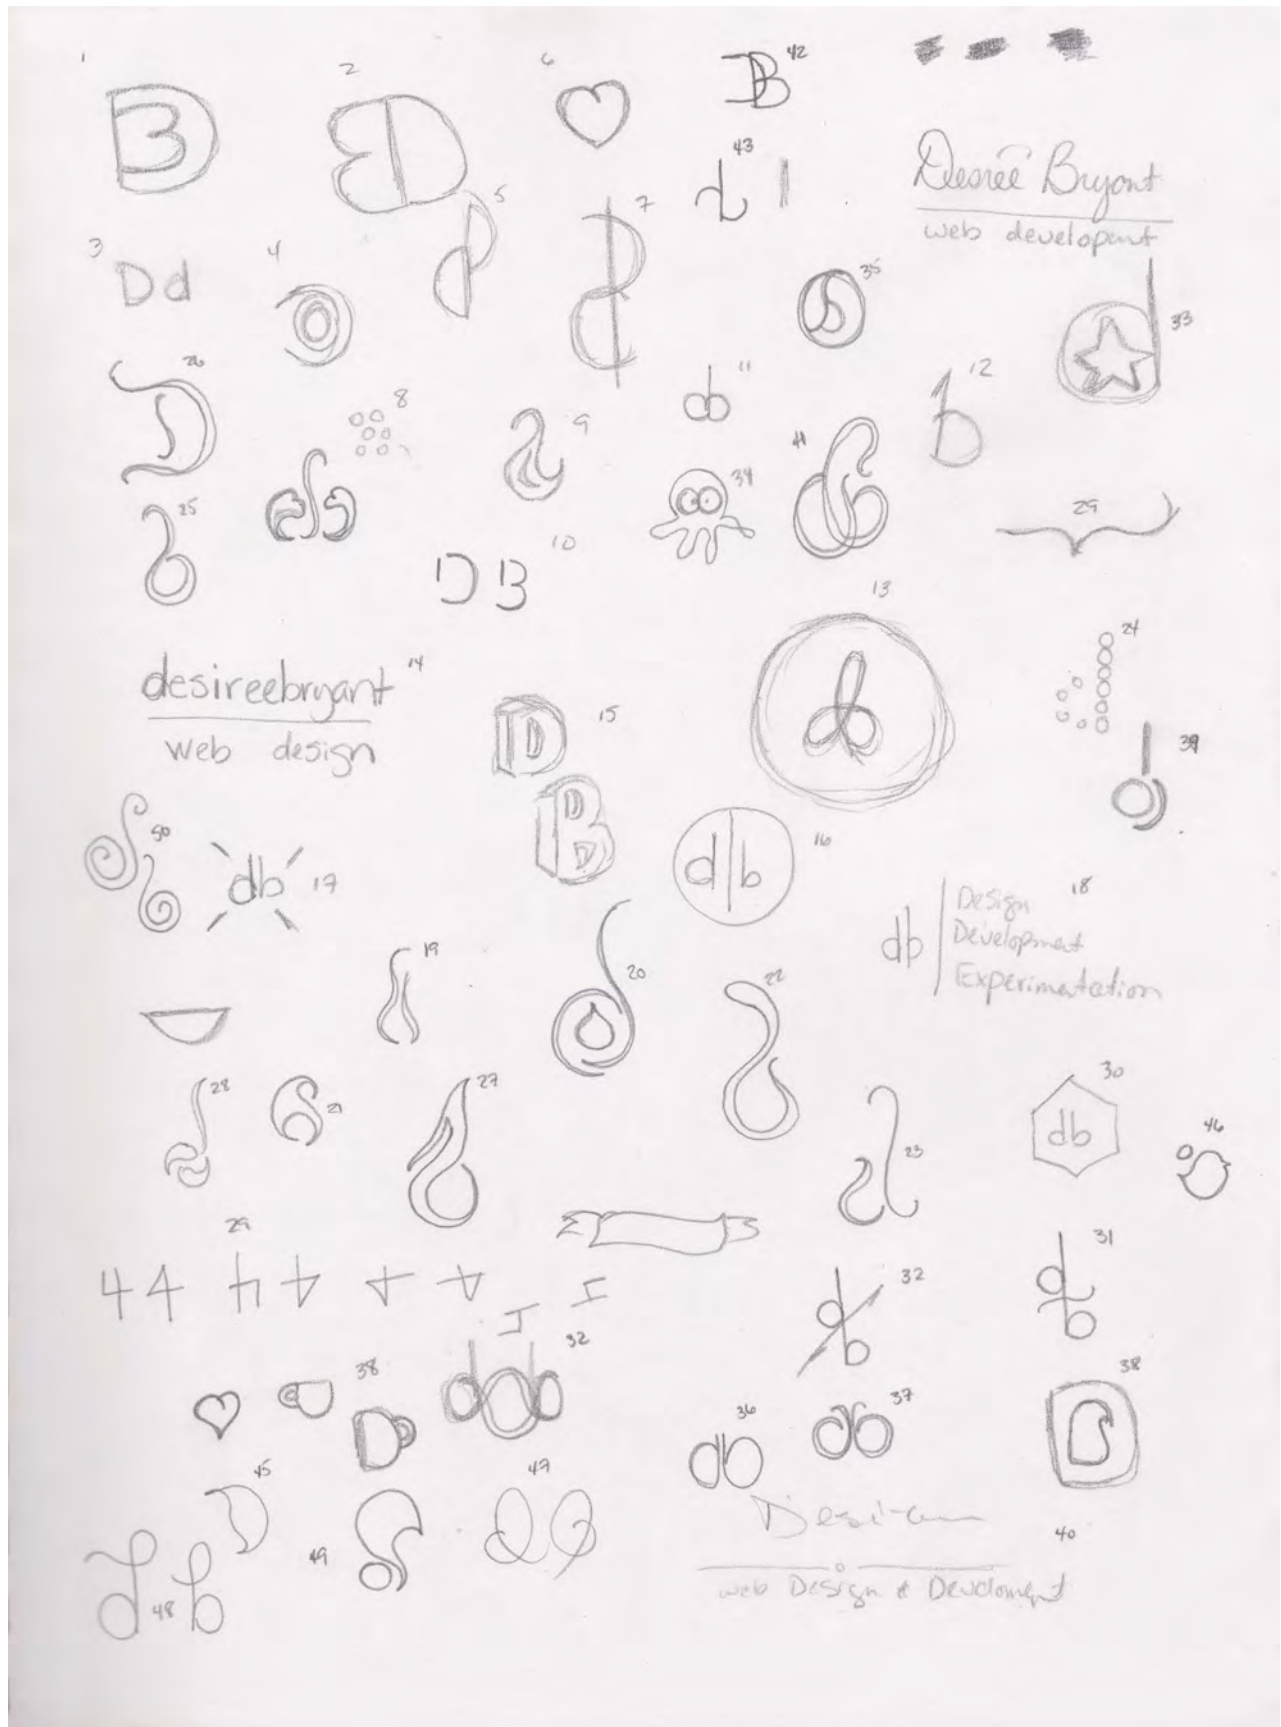 1
2
6
42
DB
43
Desireé Bryant
web developent
3
Dd
4
5
7
35
33
26
8
9
11
12
25
34
41
29
10
DB
13
24
desireebryant 14
web design
15
D
B
39
50
db 17
d|b
16
db
Design
Development
Experimentation
18
19
20
22
28
21
27
23
30
db
46
29
44
31
32
38
32
36
db
37
38
45
47
49
48
db
40
web Design & Develoment